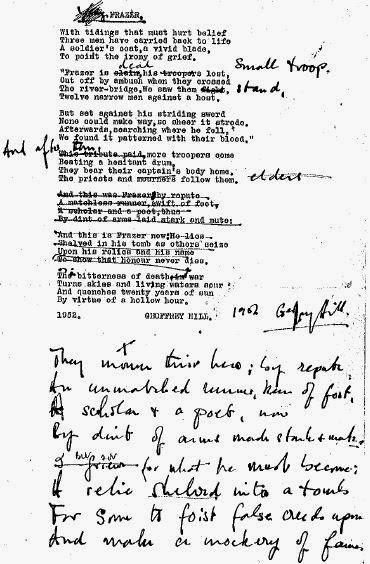 FRAZER.
With tidings that must hurt belief
Three men have carried back to life
A soldier's coat, a vivid blade,
To point the irony of grief.
dead
"Frazer is slain, his troopers lost, Small troop.
Cut off by ambush when they crossed
The river-bridge. We saw them fight, stand,
Twelve narrow men against a host.
But set against his striding sword
None could make way, so sheer it strode.
Afterwards, searching where he fell,
We found it patterned with their blood."
And after them,
This tribute paid, more troopers come
Beating a hesitant drum,
They bear their captain's body home.
The priests and mourners follow them. elders
And this was Frazer, by repute
A matchless runner, swift of foot,
A scholar and a poet, thus
By dint of arms laid stark and mute:
And this is Frazer now: He lies
Shelved in his tomb as others seize
Upon his relics and his name
To show that honour never dies.
The bitterness of death, in war
Turns skies and living waters sour
And quenches twenty years of sun
By virtue of a hollow hour.
1952. GEOFFREY HILL. 1952 Geoffrey Hill.
They mourn their hero; by repute
An unmatched runner, keen of foot,
A scholar & a poet, now
By dint of arms made stark & mute.
for what he must become;
A relic shelved into a tomb
For some to foist false creeds upon
And make a mockery of fame